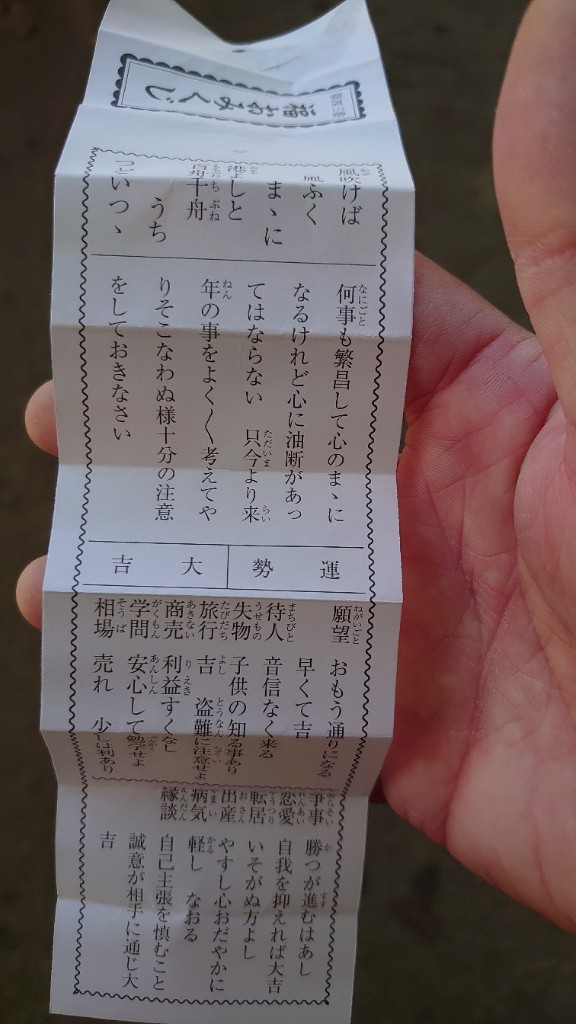 福おみくじ
風吹けば
風ふく
まゝに
港よしと
百舟千舟
うち
つどいつゝ
何事も繁昌して心のまゝに
なるけれど心に油断があっ
てはならない 只今より来
年の事をよく〳〵考えてや
りそこなわぬ様十分の注意
をしておきなさい
運勢 大吉
願望 おもう通りになる
早くて吉
待人 音信なく来る
失物 子供の知る事あり
旅行 吉 盗難に注意せよ
商売 利益すくなし
学問 安心して勉学せよ
相場 売れ 少しは利あり
争事 勝つが進むはあし
恋愛 自我を抑えれば大吉
転居 いそがぬ方よし
出産 やすし心おだやかに
病気 軽し なおる
縁談 自己主張を慎むこと
誠意が相手に通じ大
吉